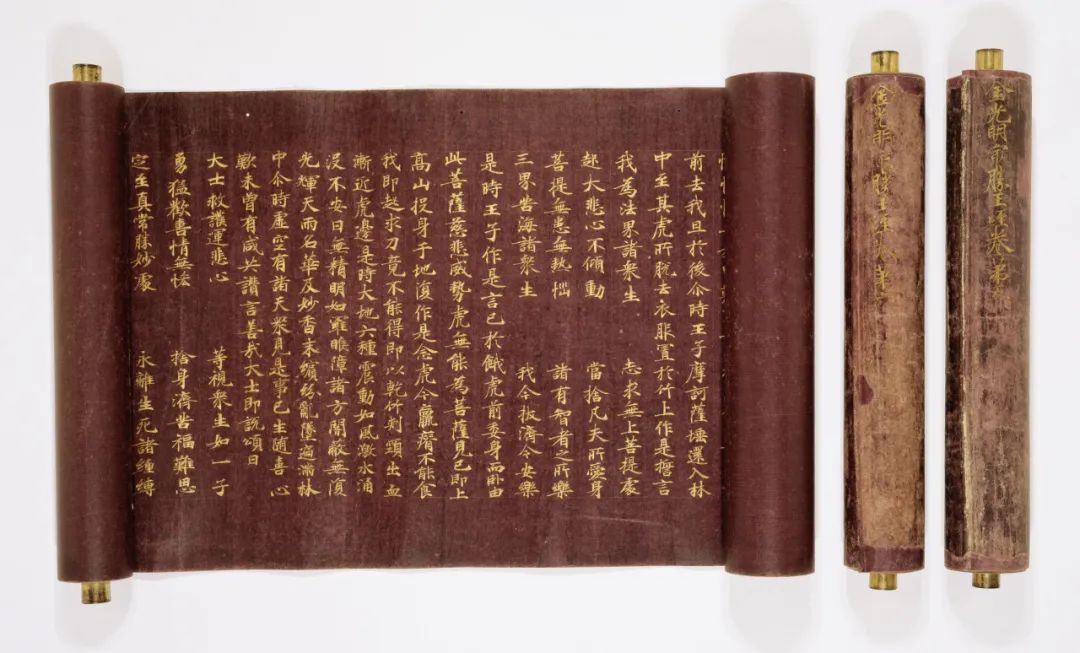 前去我且於後尒時王子摩訶薩埵還入林
中至其虎所脫去衣服置於竹上作是誓言
我為法界諸衆生 志求無上菩提處
起大悲心不傾動 當捨凡夫所愛身
菩提無患無熱惱 諸有智者之所樂
三界苦海諸衆生 我今拔濟令安樂
是時王子作是言已於餓虎前委身而卧由
此菩薩慈悲威勢虎無能為菩薩見已即上
高山投身于地復作是念虎今羸瘠不能食
我即起求刀竟不能得即以乾竹刺頸出血
漸近虎邊是時大地六種震動如風激水涌
沒不安日無精明如羅睺障諸方闇蔽無復
光輝天雨名華及妙香末繽紛亂墜遍滿林
中尒時虛空有諸天衆見是事已生随喜心
歎未曾有咸共讃言善哉大士即說頌曰
大士救護運悲心 等視衆生如一子
勇猛歡喜情無悋 捨身濟苦福難思
定至真常勝妙處 永離生死諸纏縛
金光明最勝王經卷第
金光明最勝王經卷第